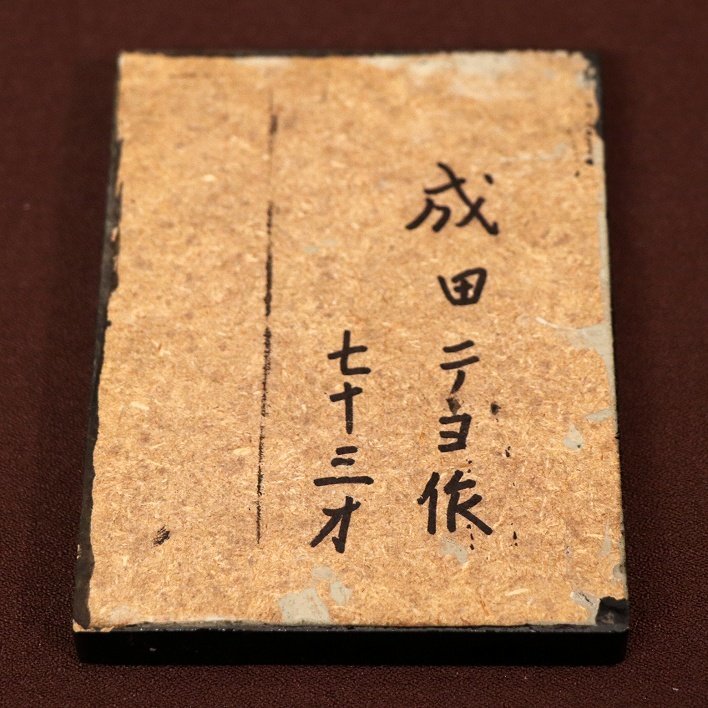 成田テヨ作
七十三才